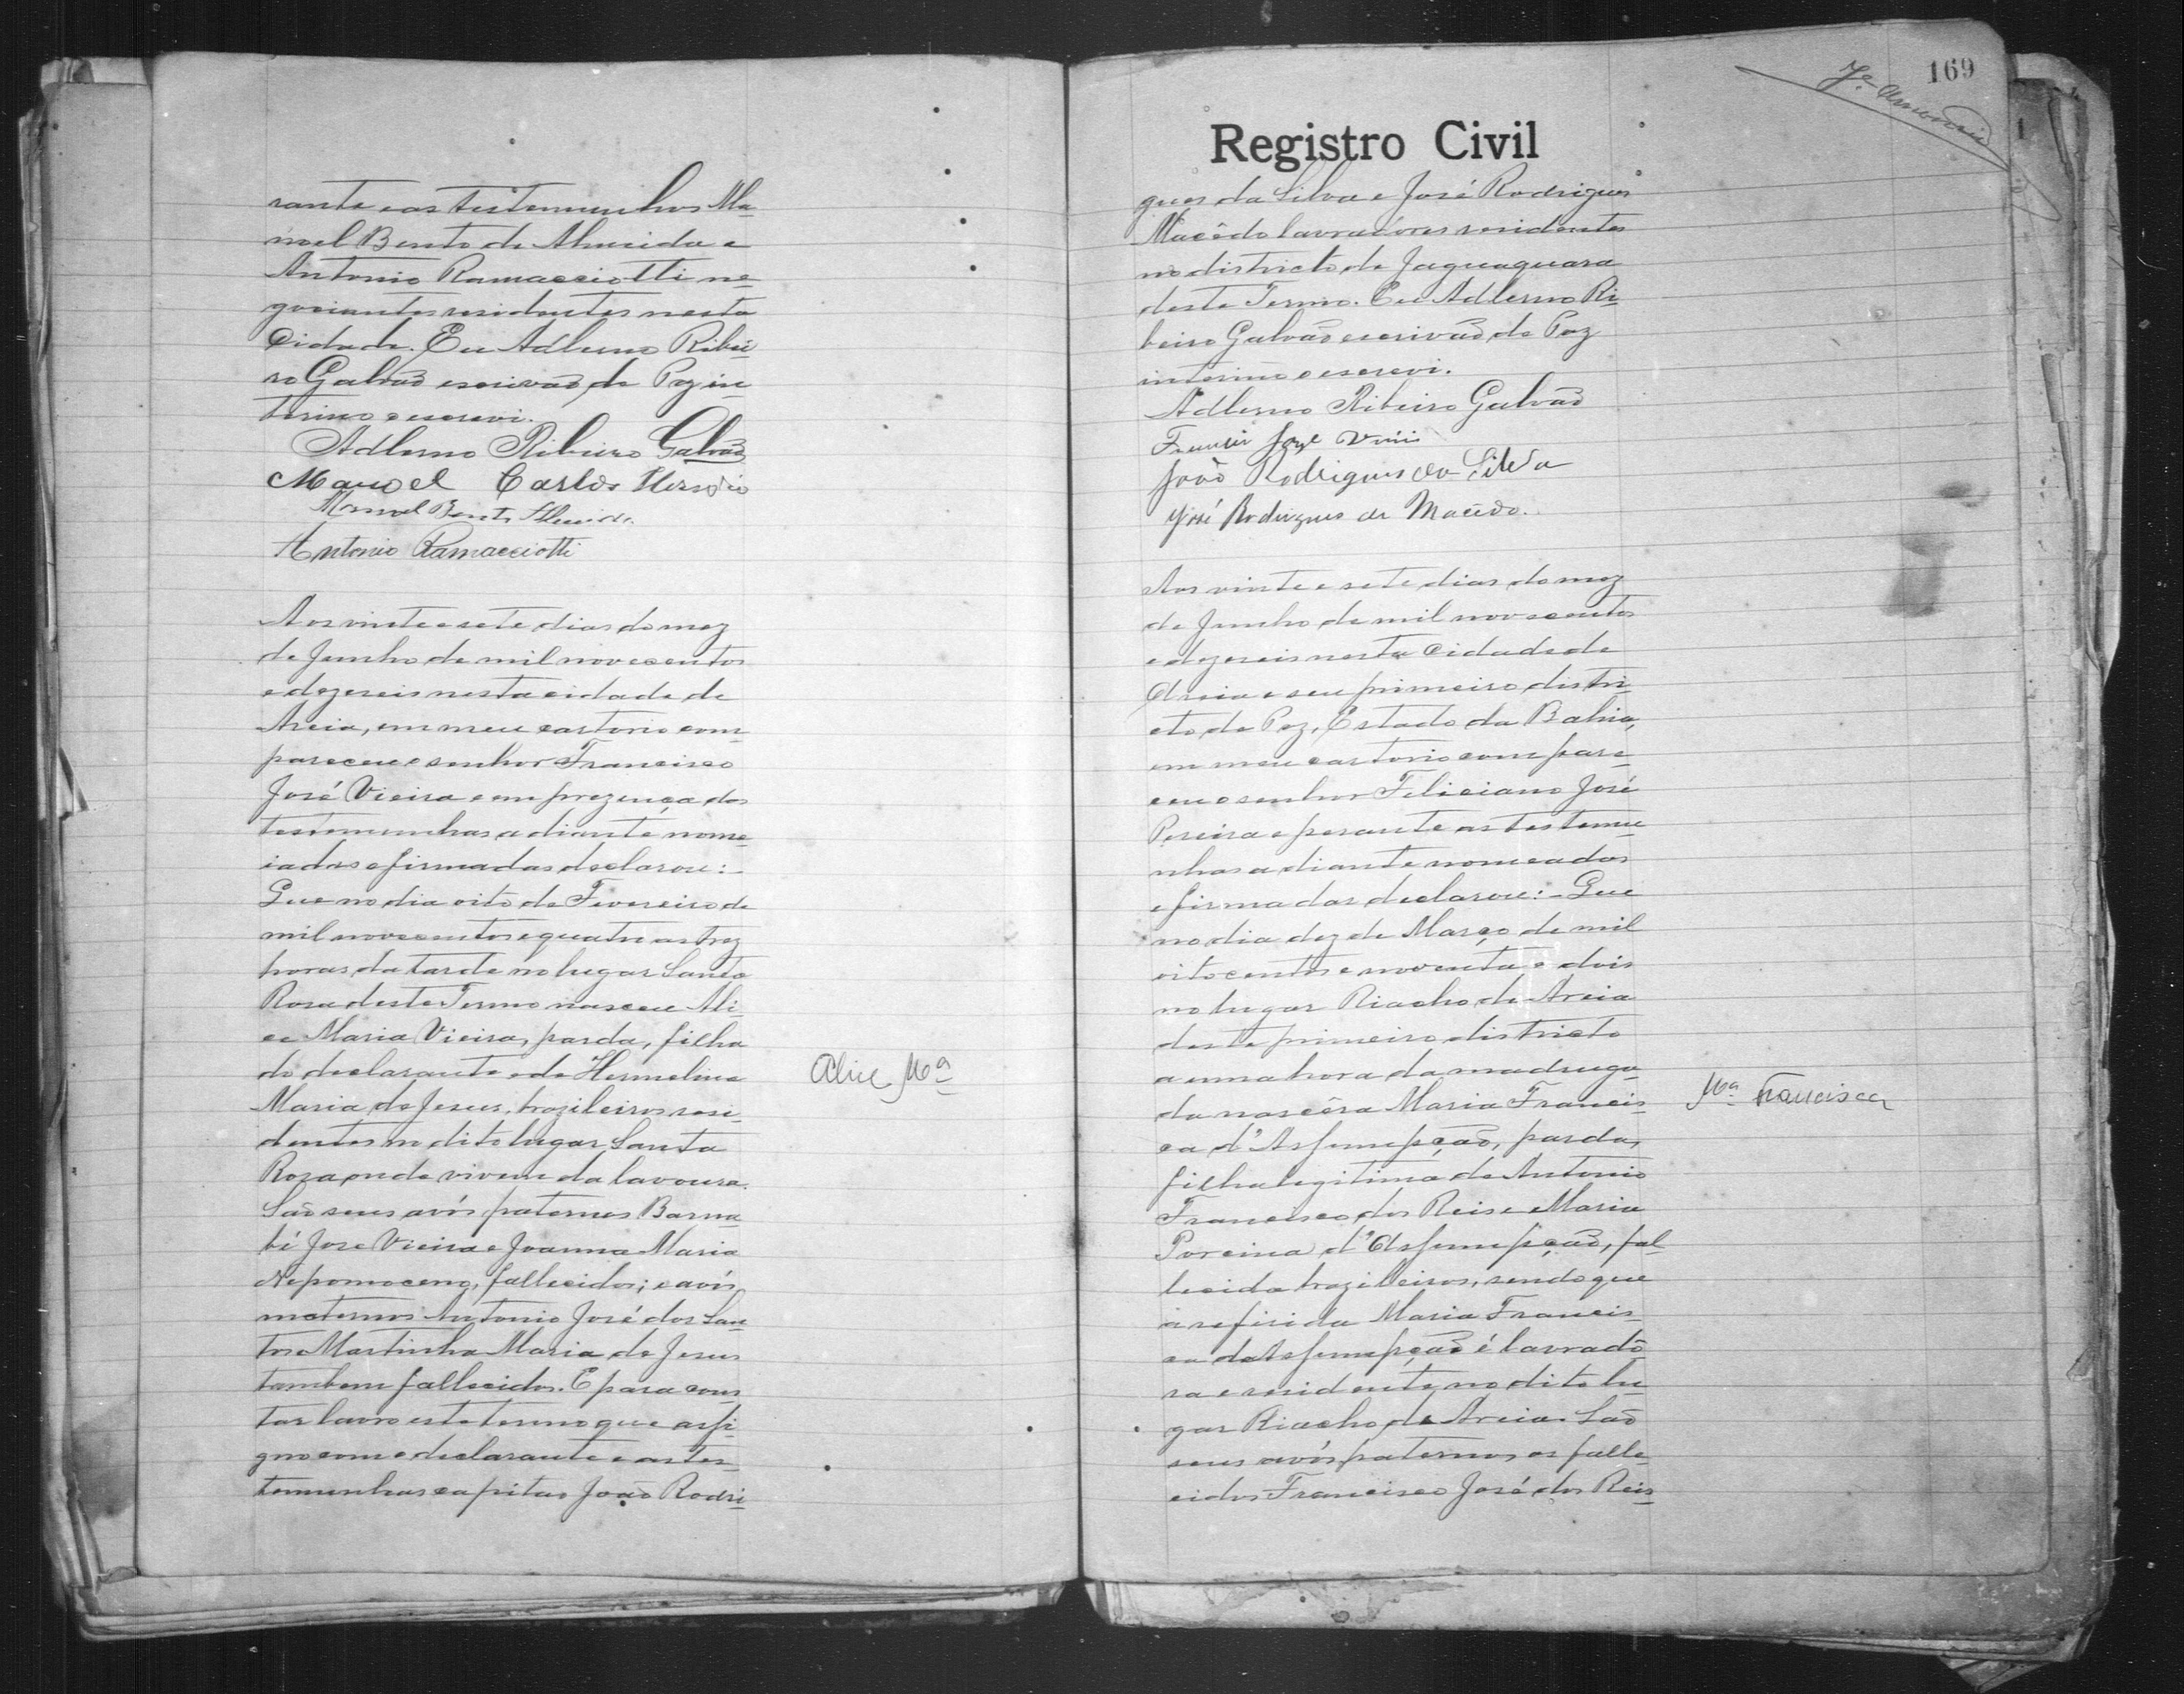 rante e as testemunhas Ma
noel Bento de Almeida e
Antonio Ramacciotti ne
gociantes residentes nesta
Cidade. Eu Adlerno Ribei
ro Galvão escrivão de Paz in
terino o escrevi.
Adlerno Ribeiro Galvão
Manoel Carlos
Manoel Bento Almeida
Antonio Ramacciotti
Aos vinte e sete dias do mez
de Junho de mil novecentos
e dezeseis nesta cidade de
Areia, em meu cartorio com
pareceu o senhor Francisco
José Vieira e em prezença das
testemunhas adiante nome
iadas e firmadas declarou:-
Que no dia oito de Fevereiro de
mil novecentos e quatro as trez
horas da tarde no lugar Santa
Rosa deste Termo nasceu Ali
ce Maria Vieira, parda, filha
do declarante e de Hermelina
Maria de Jesus, brazileiros resi
dentes no dito lugar Santa
Rosa onde vivem da lavoura.
São seus avós paternos Barna
bé Jose Vieira e Joanna Maria
Nepomoceno, fallecidos; e avós
maternos Antonio José dos San
tos e Martinha Maria de Jesus
tambem fallecidos. E para cons
tar lavro este termo que assi
gno com o declarante e as tes
temunhas capitão João Rodri
Alice Mª
169
Registro Civil
gues da Silva e José Rodrigues
Macêdo lavradores residentes
no districto de Jaguaquara
deste Termo. Eu Adlerno Ri
beiro Galvão escrivão de Paz
interino o escrevi.
Adlerno Ribeiro Galvão
João Rodrigues da Silva
José Rodrigues de Macêdo.
Aos vinte e sete dias do mez
de Junho de mil novecentos
e dezeseis nesta Cidade de
Areia e seu primeiro distri
cto de Paz, Estado da Bahia,
em meu cartorio compare
ceu o senhor Feliciano José
Pereira e perante as testemu
nhas adiante nomeadas
e firmadas declarou:- Que
no dia dez de Março de mil
oitocentos e noventa e dois
no lugar Riacho de Areia
deste primeiro districto
a uma hora da madruga
da nascêra Maria Francis
ca d'Assumpção, parda,
filha legitima de Antonio
Francisco dos Reis e Maria
Porcina d'Assumpção, fal
lecida brazileiros, sendo que
a referida Maria Francis
ca da Assumpção é lavradô
ra e residente no dito lu
gar Riacho de Areia. São
seus avós paternos os falle
cidos Francisco José dos Reis
Mª Francisca